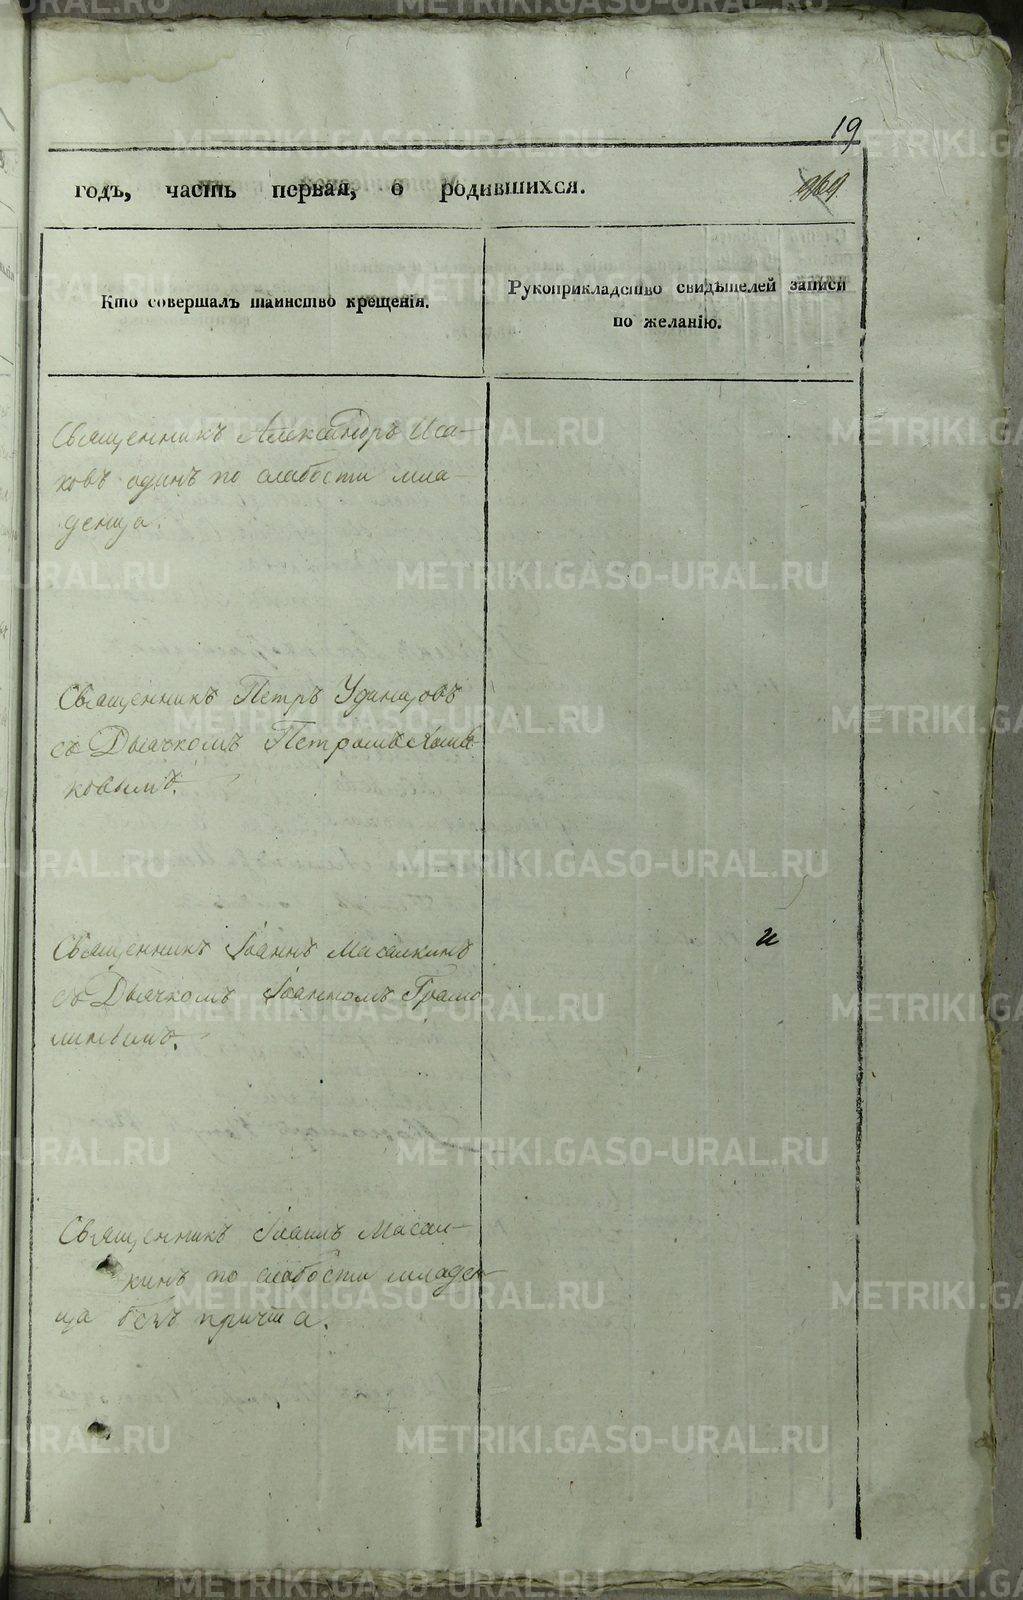 19
годъ, часть первая, о родившихся.
969
Кто совершалъ таинство крещенія.
Рукоприкладство свидѣтелей записи
по желанію.
Священникъ Александръ Иса-
ковъ одинъ по слабости мла-
денца.
Священникъ Петръ Удинцовъ
съ Дьячкомъ Петромъ
ковымъ.
Священникъ Іоаннъ Масалкинъ
съ Дьячкомъ Іоанномъ
и
Священникъ Іоаннъ Масал-
кинъ по слабости младен-
ца безъ причта.
METRIKI.GASO-URAL.RU